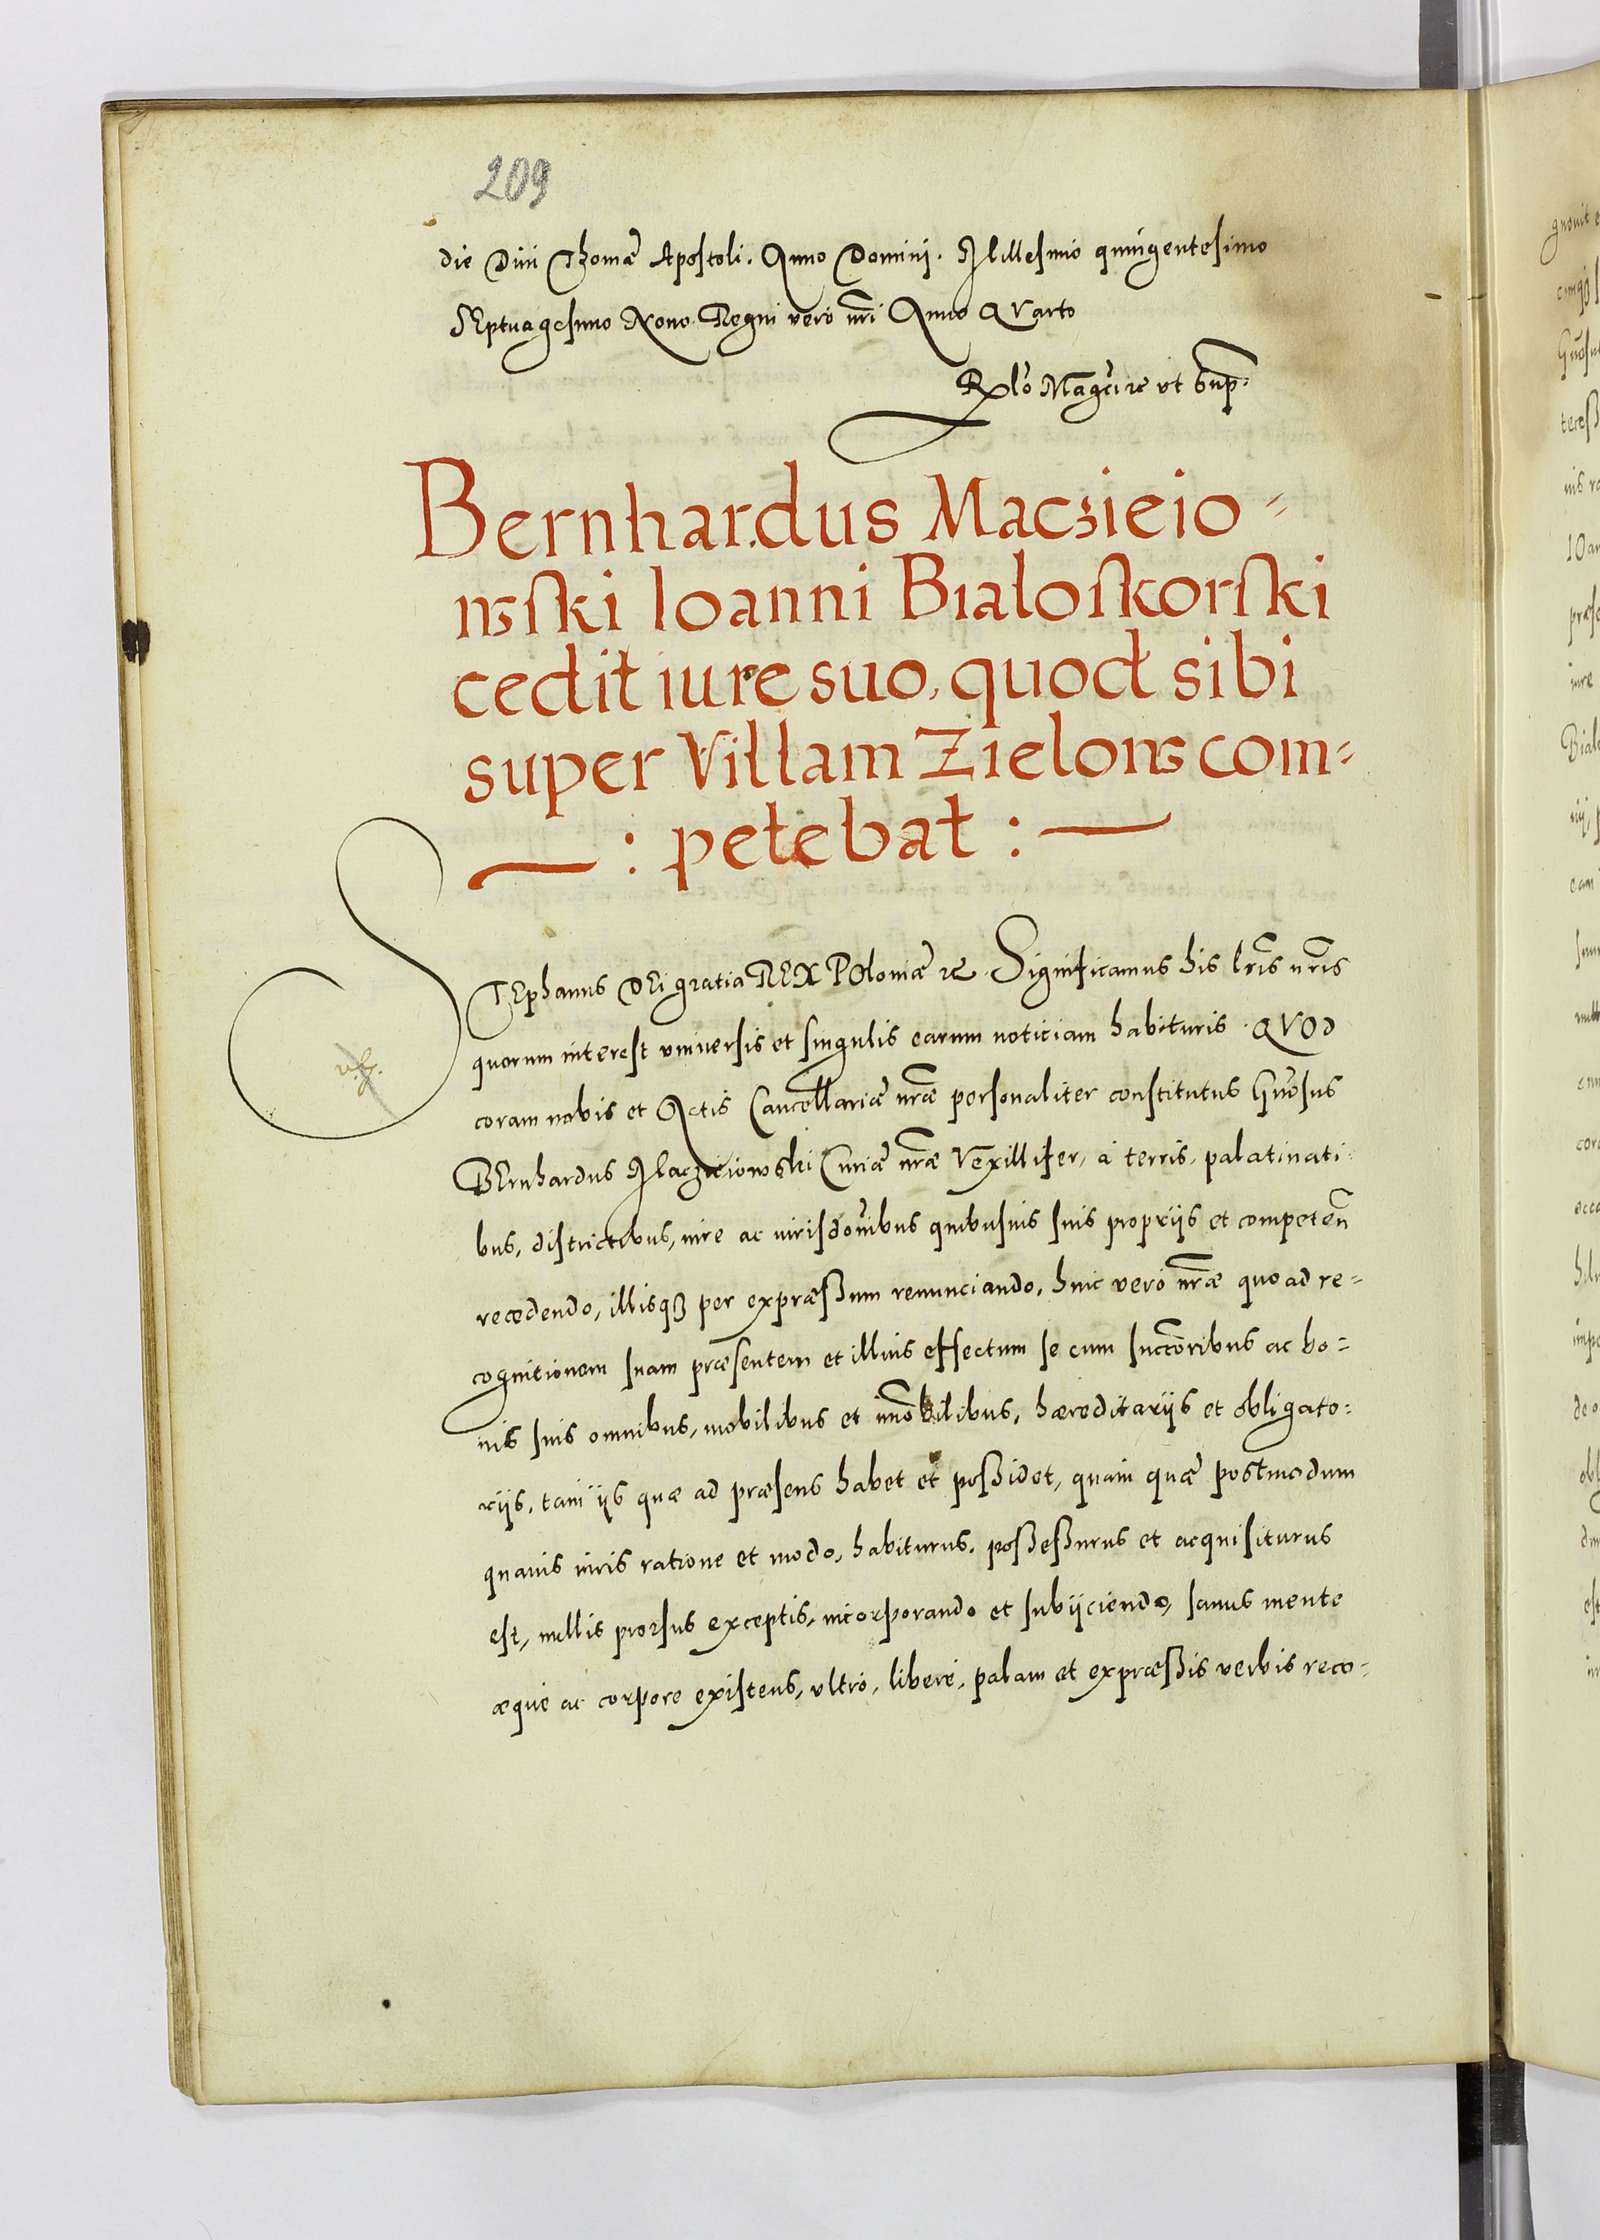 209
die Diui Thomæ Apostoli. Anno Domini. Millesimo quingentesimo
SEptuagesimo Nono. Regni vero nri Anno QVarto
Rlo Magci ut sup.
Bernhardus Maczieio=
wski Ioanni Białoskorski
cedit iure suo, quod sibi
super Villam Zielow com=
: petebat :
STEphanus DEi gratia REX POloniæ etc. Significamus his lris nris
quorum interest vniuersis et singulis earum noticiam habituris. QVOD
coram nobis et Actis Cancellariæ nræ personaliter constitutus Gnosus
BErnhardus Maczieiowski Curiæ nræ Vexillifer, à terris, palatinati
bus, districtibus, iure ac iurisdonibus quibusuis suis proprijs et competen
recedendo, illisqȝ per expræßum renunciando, huic vero nræ quo ad re=
cognitionem suam præsentem et illius effectum se cum succoribus ac bo=
nis suis omnibus, mobilibus et imobilibus, hæreditarijs et obligato=
rijs, tam ijs quæ ad præsens habet et poßidet, quam quæ postmodum
quauis iuris ratione et modo, habiturus, poßeßurus et acquisiturus
est, nullis prorsus exceptis, incorporando et subijciendo, sanus mente
æque ac corpore existens, vltro, liberè, palam et expræßis verbis reco=